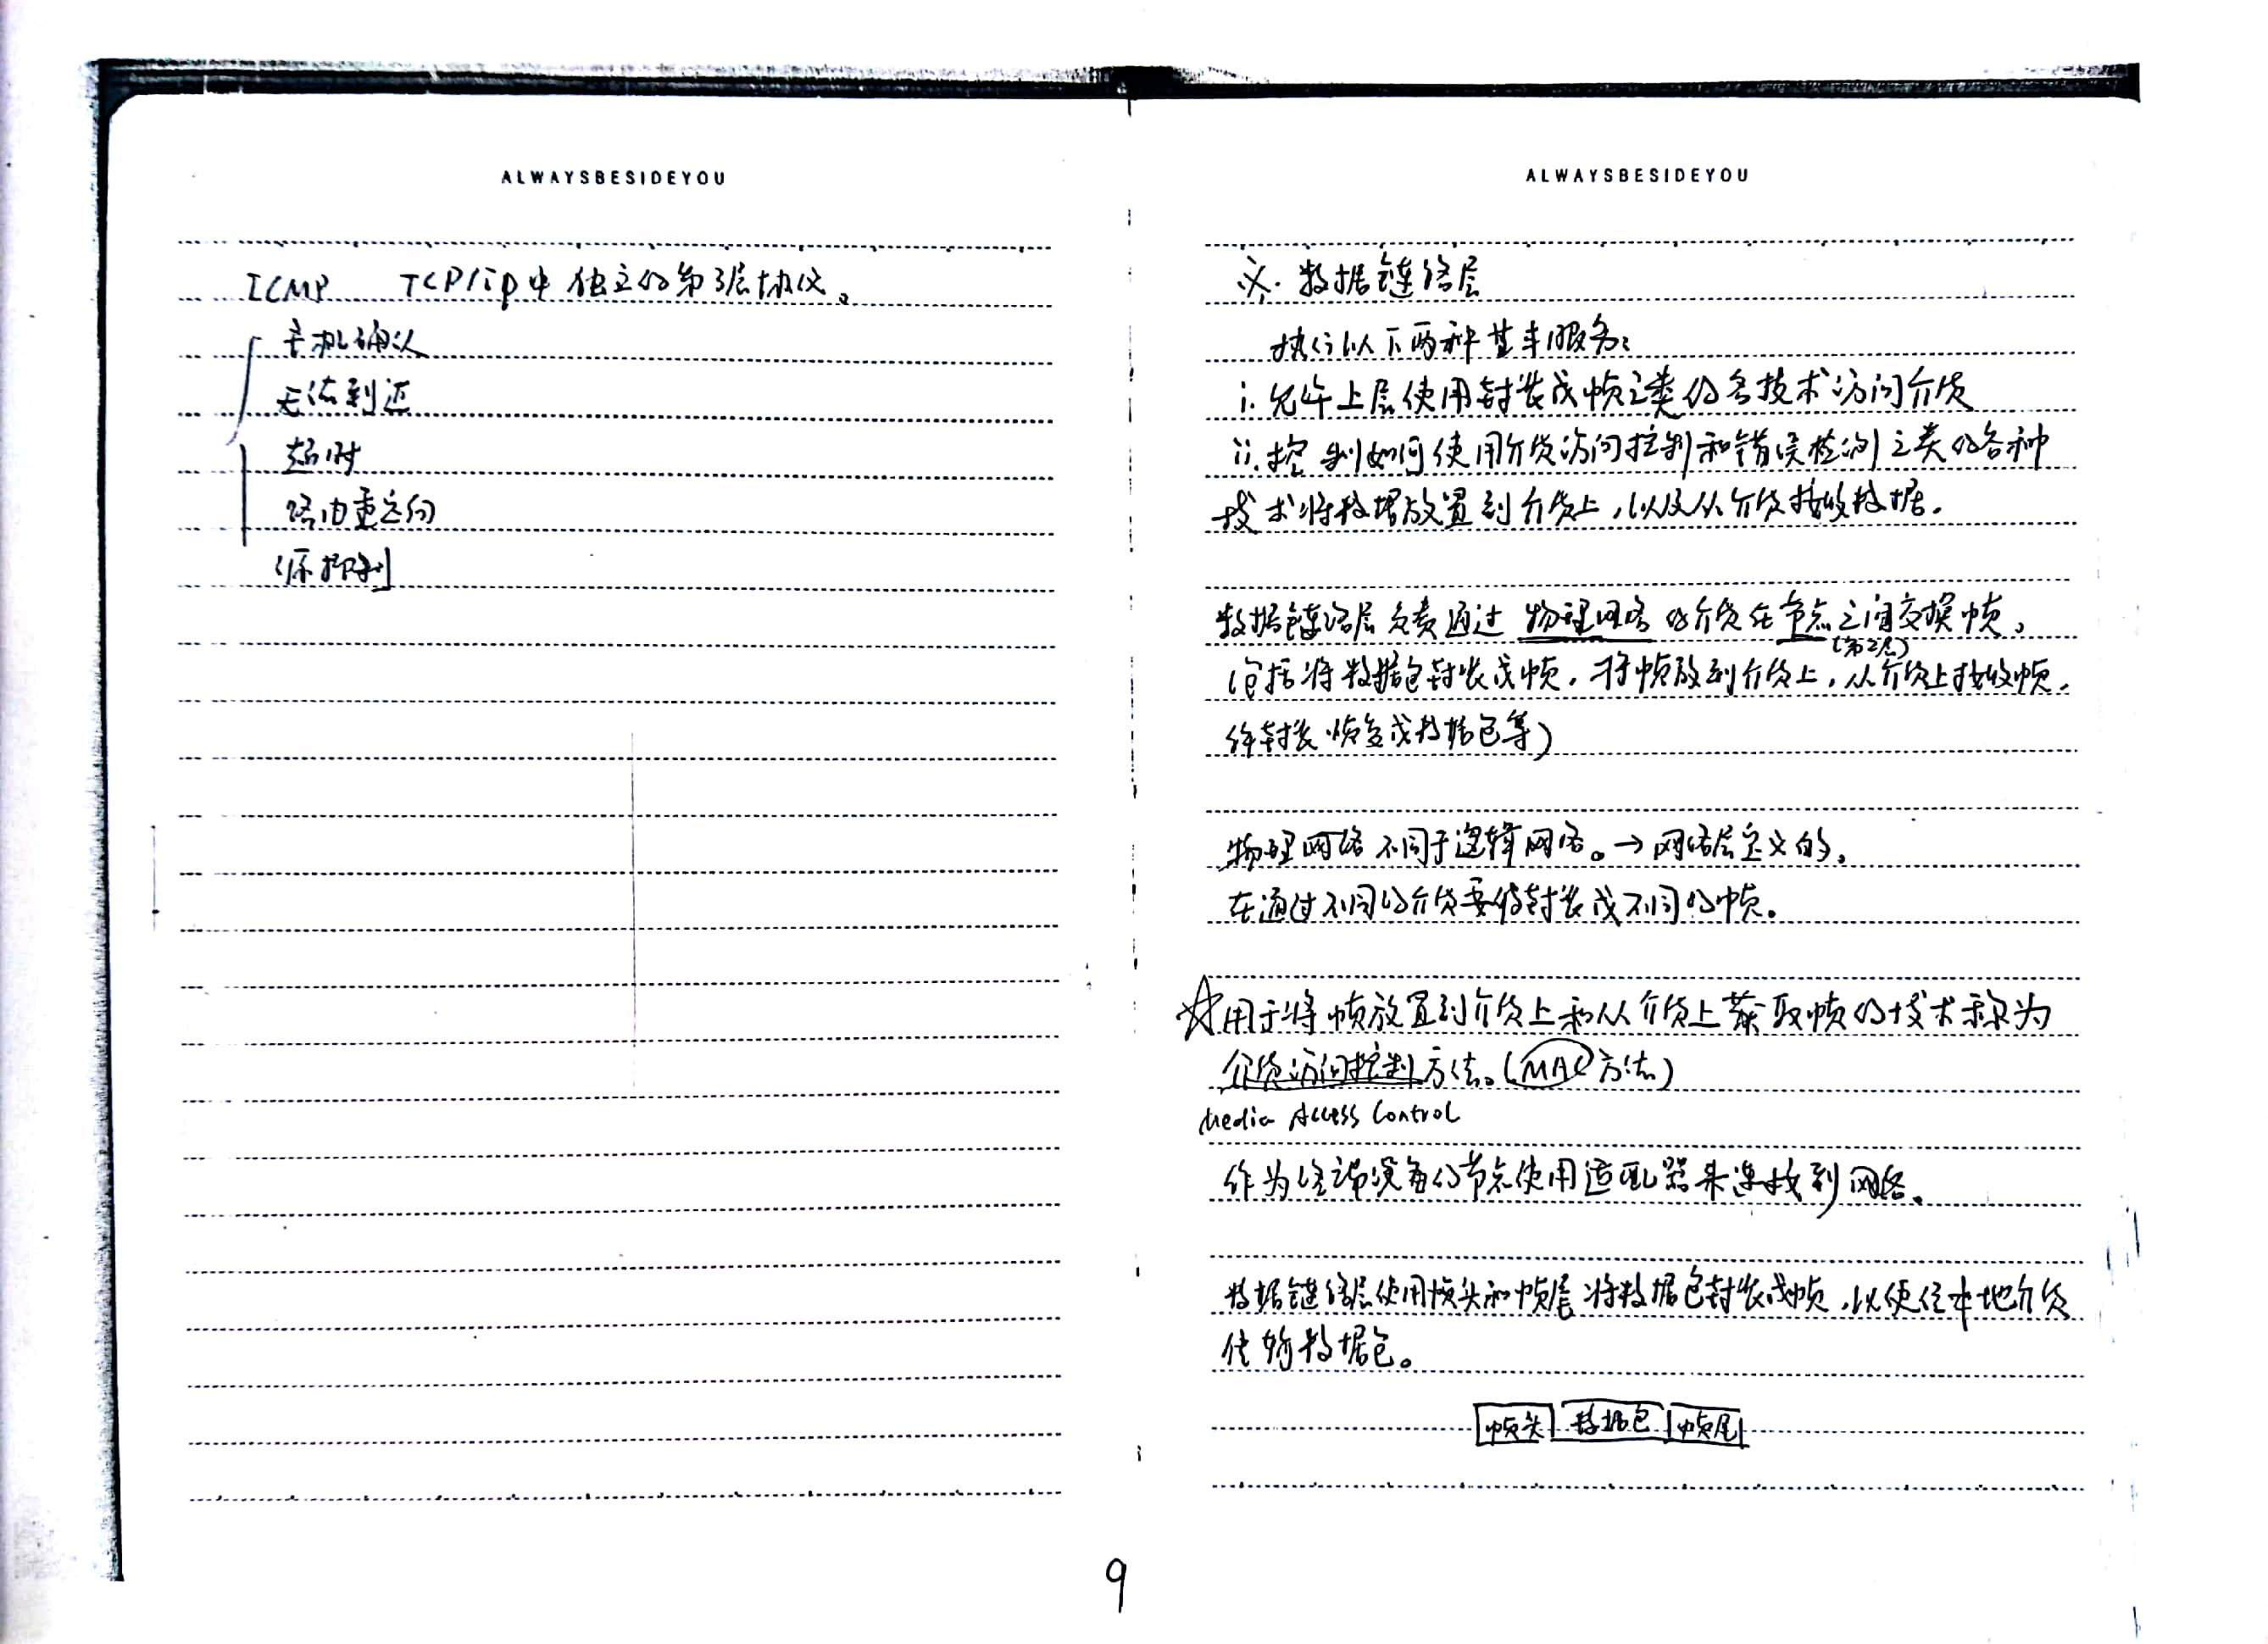 ALWAYSBESIDEYOU
ICMP TCP/ip中独立的第3层协议。
主机确认
无法到达
超时
路由重定向
源抑制
ALWAYSBESIDEYOU
数据链路层
执行以下两种基本服务：
i. 允许上层使用封装成帧之类的各技术访问介质
ii. 控制如何使用介质访问控制和错误检测之类的各种
技术将数据放置到介质上，以及从介质接收数据.
数据链路层负责通过物理网络的介质在节点之间交换帧，
(第2层)
(包括将数据包封装成帧，将帧放到介质上，从介质上接收帧，
解封装恢复成数据包等)
物理网络不同于逻辑网络。→网络层定义的，
在通过不同的介质要价封装成不同的帧。
☆用于将帧放置到介质上和从介质上获取帧的技术称为
介质访问控制方法。(MAC方法)
Media Access Control
作为终端设备的节点使用适配器来连接到网络。
数据链路层使用帧头和帧尾将数据包封装成帧，以便经本地介质
传输数据包。
帧头 数据包 帧尾
9